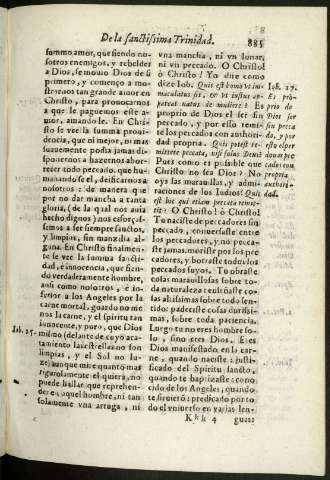 De la sanctissima Trinidad. 885
summo amor, que siendo no-
sotros enemigos, y rebeldes
a Dios, se mouio Dios de si
primero, y començo a mo-
strarnos tan grande amor en
Christo, para prouocarnos
a que le paguemos este a-
mor, amandole. En Christo
se vee la summa proui-
dencia, que ni mejor, ni mas
suauemente podia jamas di-
ponernos a hazernos abor-
recer todo peccado, que hu-
manandose el, dedicarnos a
nosotros: de manera que
por no dar mancha a tanta
gloria (de la qual nos auia
hecho dignos) nos esforças-
semos a ser siempre sanctos,
y limpios, sin manzilla al-
guna. En Christo finalmen-
te se vee la summa sancti-
dad, è innocencia, que sien-
do verdaderamente hombre,
assi como nosotros, è in-
ferior a los Angeles por la
carne mortal, guardo no me-
nos la carne, y el spiritu tan
innocente, y puro, que Dios
Iob. 25. mismo (delante de cuyo aca-
tamiento las estrellas no son
limpias, y el Sol no lu-
ze) aunque mire quanto mas
rigurosamente el quiera, no
puede hallar que reprehen-
der en aquel hombre, ni tan
solamente vna arruga, ni
vna mancha, ni vn lunar,
ni vn peccado. O Christo!
ò Christo! Yo dire como
dize Iob. Quis est homo vt im-
maculatus sit, & vt iustus ap-
pareat natus de muliere? Es
proprio de Dios el ser sin
peccado, y por esso remitir
te los peccados con authori-
dad propria. Quis potest re-
mittere peccata, nisi solus Deus?
Pues como es possible que
Christo no sea Dios? No
oyas las marauillas, y admi-
raciones de los Iudios! Quis
est hic qui etiam peccata remit-
tit? O Christo! ò Christo!
Tu naciste de peccadores sin
peccado, conuersaste entre
los peccadores, y no pecca-
ste jamas, moriste por los pec-
cadores, y borraste todos los
peccados suyos. Tu obraste
cosas marauillosas sobre to-
da naturaleza: enseñaste co-
sas altissimas sobre todo sen-
tido: padeciste cosas durissi-
mas, sobre toda paciencia.
Luego tu no eres hombre so-
lo, sino eres Dios. Eres
Dios manifestado en la car-
ne, quando naciste: justifi-
cado del Spiritu sancto,
quando te baptizaste: cono-
cido de los Angeles, quando
te siruieron: predicado por to-
do el vniuerso en varias len-
Iob. 15.
Es pro-
prio de
Dios ser
sin pecca
do, y por
donar pec
cados con
propria
authori-
dad.
Kkk 4 guas: